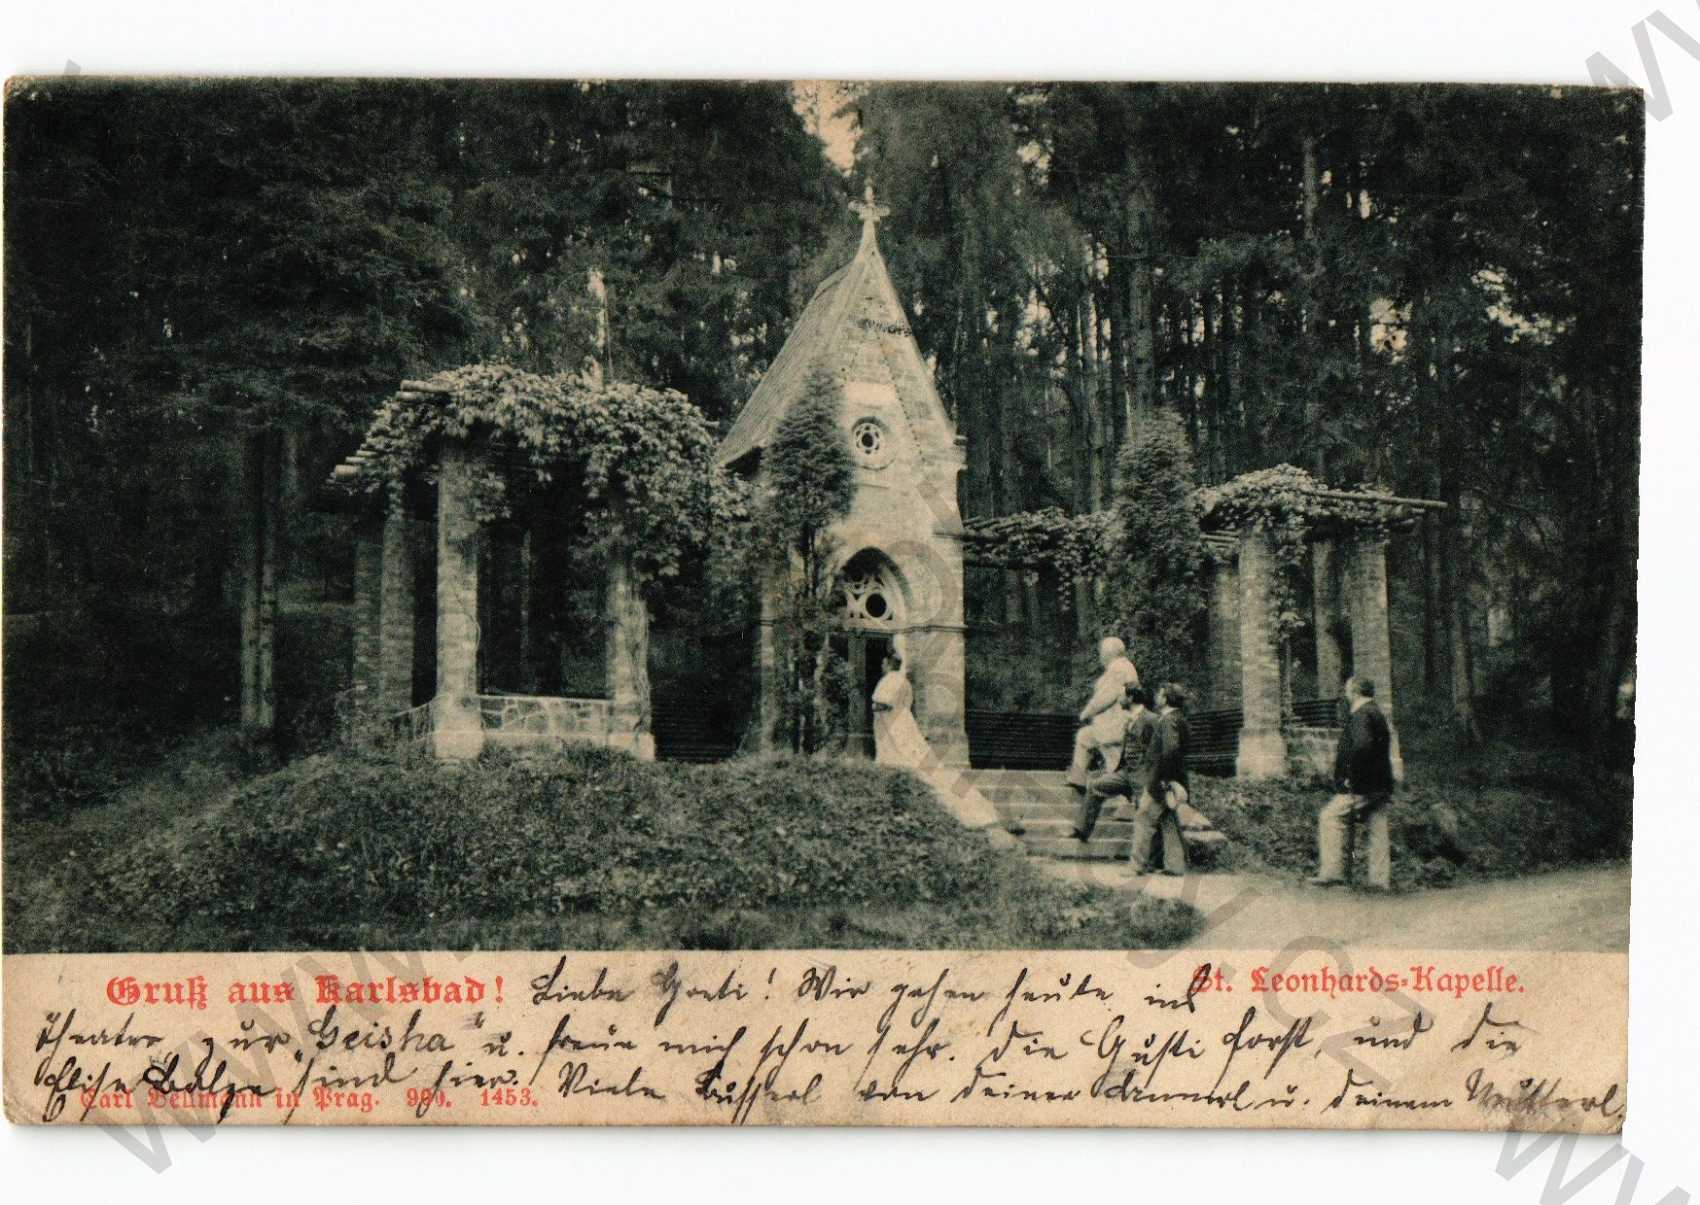 Gruß aus Karlsbad!
St. Leonhards-Kapelle.
Liebe Greti! Wir gehen heute ins
Theater zur "Geisha" u. freue mich schon sehr. Die Gusti Forst, und die
Elise sind hier. Viele Busserl von deiner u. deinem Mutterl.
Carl Bellmann in Prag. 1453.